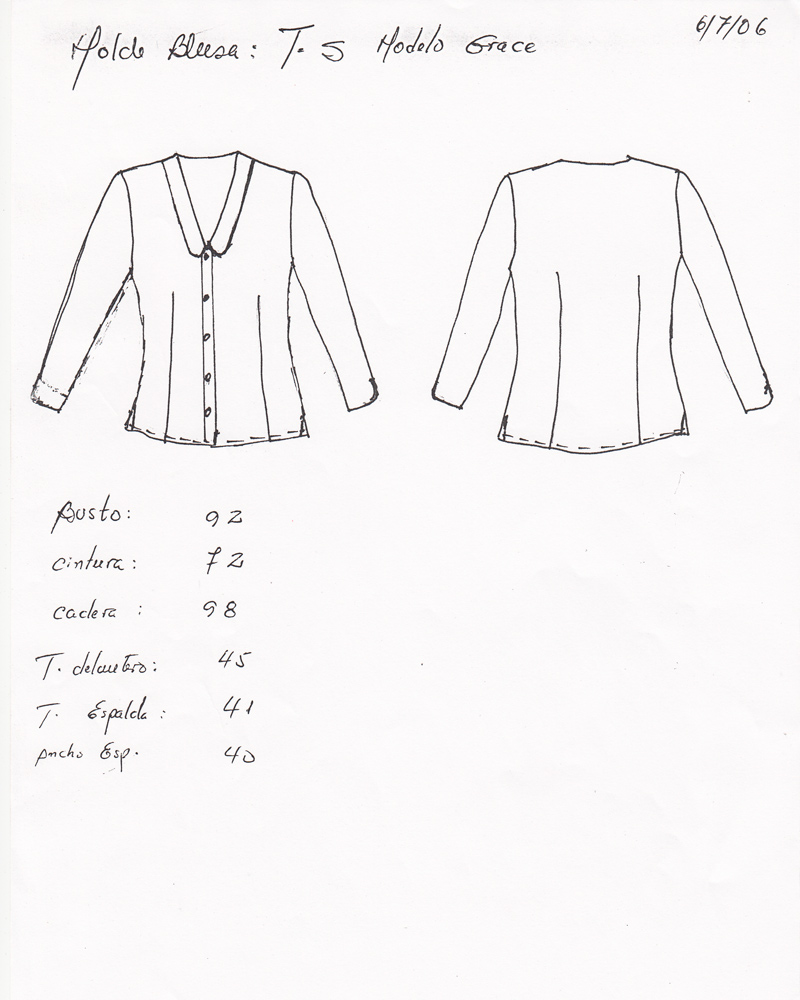 6/7/06
Molde Blusa: T. S Modelo Grace
Busto: 92
cintura: 72
cadera : 98
T. delantero: 45
T. Espalda : 41
Ancho Esp. 40